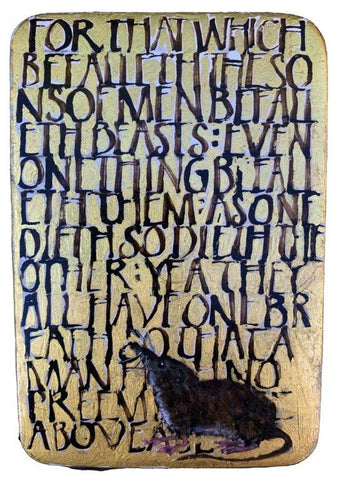 FOR THAT WHICH
BEFALLETH THE SO
NS OF MEN BEFALL
ETH BEASTS: EVEN
ONE THING BEFALL
ETH THEM: AS ONE
DIETH SO DIETH THE
OTHER: YEA THEY
ALL HAVE ONE BR
EATH SO THAT A
MAN NO
PREEM
ABOVE A